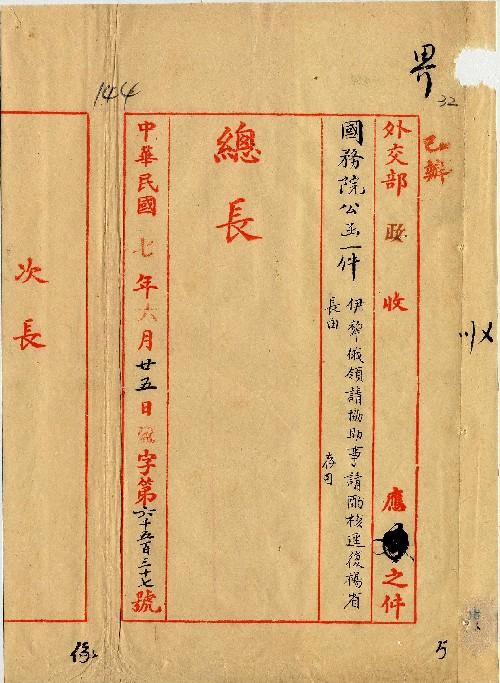 界
32
已辦
外交部 政 收 應 之件
國務院公函一件
伊犂俄領請協助事請酌核逕復楊省
長由
存司
總長
中華民國七年六月廿五日 字第六千五百三十七號
144
次長